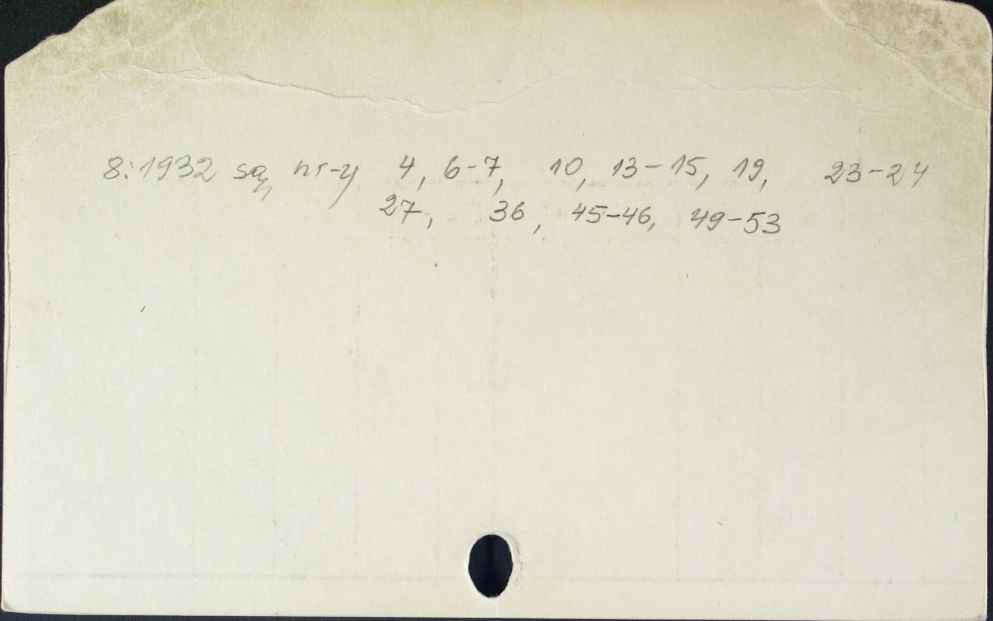 8:1932 są nr-y 4, 6-7, 10, 13-15, 19, 23-24
27, 36, 45-46, 49-53